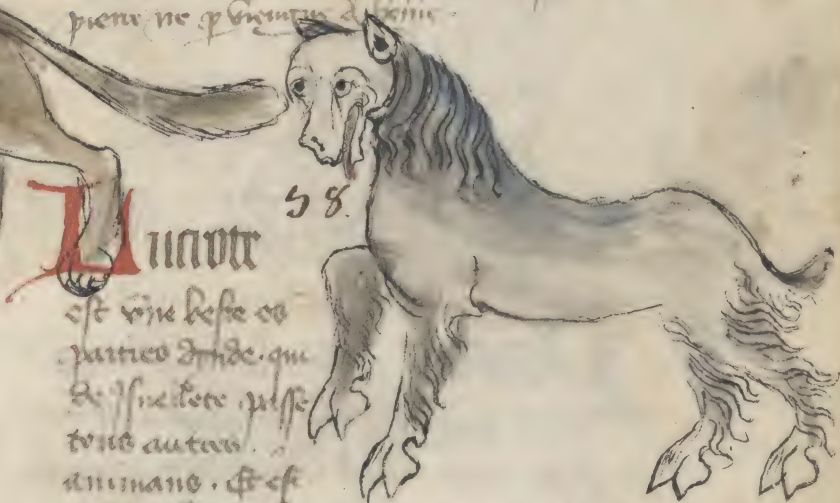 pierre ne
58.
est vne beste es
parties dynde. qui
de ysnellete passe
tous autres
animans. Et est